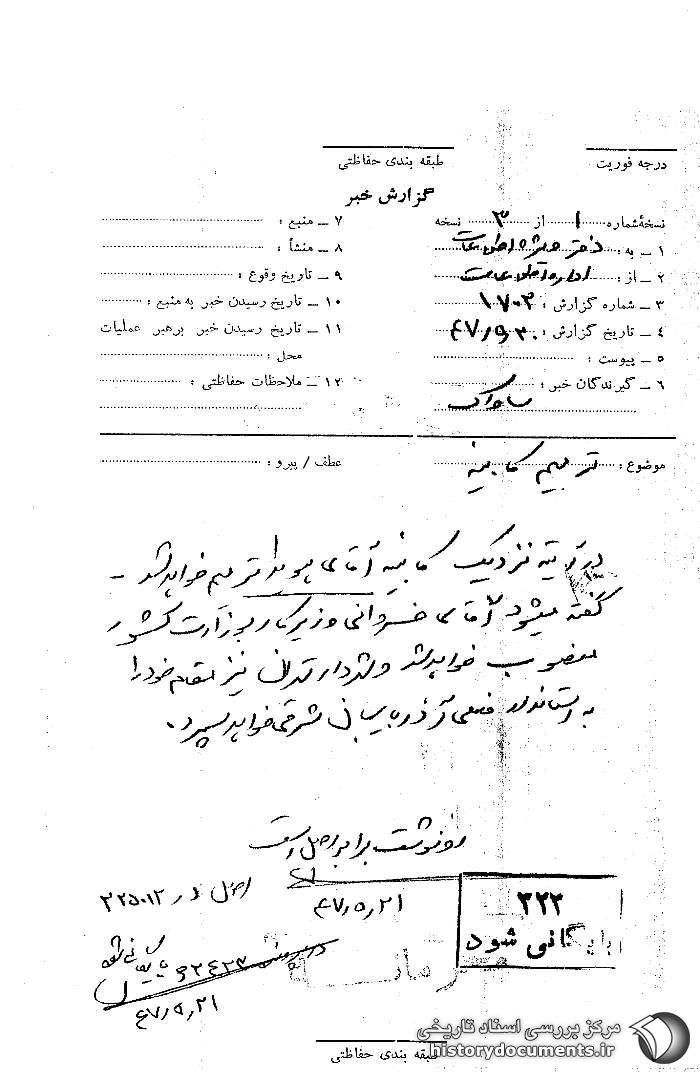 درجه فوریت
طبقه بندی حفاظتی
گزارش خبر
نسخهٔ شماره ۱ از ۳ نسخه
۱ ـ به : دفتر ویژه اطلاعات
۲ ـ از : اداره اطلاعات
۳ ـ شماره گزارش : ۱۷۰۲
۴ ـ تاریخ گزارش : ۴۷/۵/۲۰
۵ ـ پیوست :
۶ ـ گیرندگان خبر :
ساواک
۷ ـ منبع :
۸ ـ منشأ :
۹ ـ تاریخ وقوع :
۱۰ ـ تاریخ رسیدن خبر به منبع :
۱۱ ـ تاریخ رسیدن خبر برهبر عملیات
محل :
۱۲ ـ ملاحظات حفاظتی :
موضوع : ترمیم کابینه
عطف / پیرو :
در آتیه نزدیک کابینه آقای هویدا ترمیم خواهد شد ـ
گفته میشود آقای خسروانی وزیر کار بوزارت کشور
منصوب خواهد شد و شهردار تهران نیز مقام خود را
به استاندار فعلی آذربایجان شرقی خواهد سپرد .
رونوشت برابر اصل است
۴۷/۵/۲۱
اصل در ۲۲۵۰۱۲
۳۲۲
بایگانی شود
در پرونده ۹۲۴۳۷ بایگانی شود
۴۷/۵/۲۱
مرکز بررسی اسناد تاریخی
historydocuments.ir
طبقه بندی حفاظتی